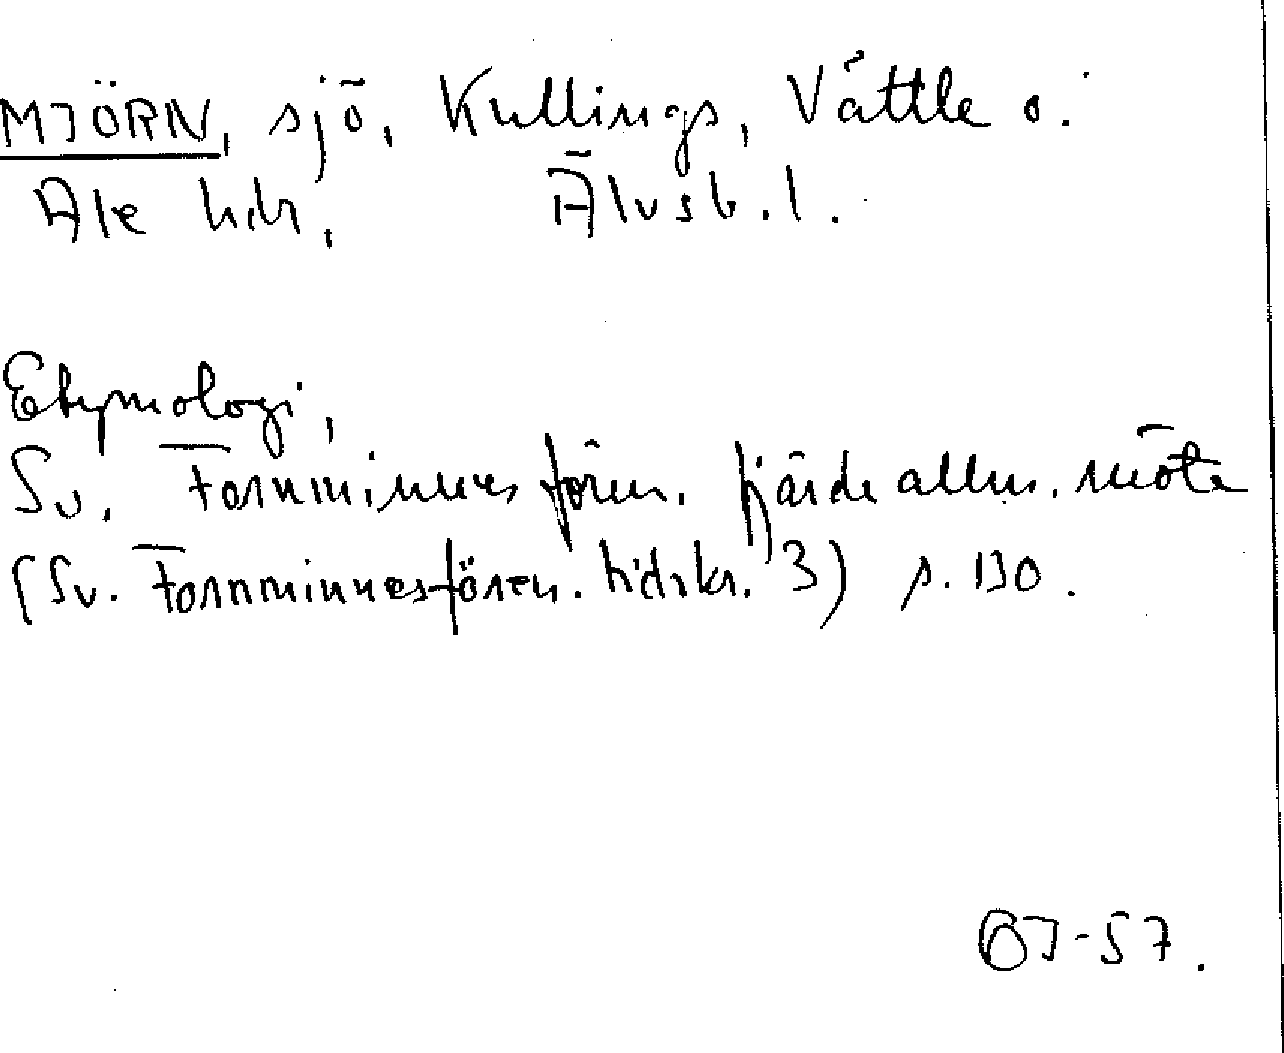 MJÖRN, sjö, Kullings, Vättle o.
Ale hdr, Älvsb. l.
Etymologi,
Sv. Fornminnesfören. fjärde allm. möte
(Sv. Fornminnesfören. tidskr. 3) s. 130.
BJ-57.